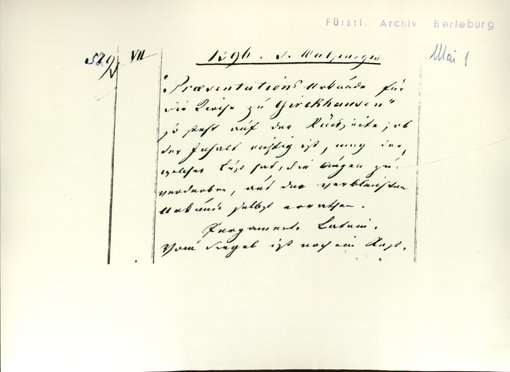 Fürstl. Archiv Berleburg
529 VII 1396. S. Walpurgis Mai 1
"Præsentations Urkunde für
die Kirche zu Girckhausen"
so steht auf der Rückseite; ob
der Inhalt richtig ist, mag der,
welcher Lust hat, die Augen zu
verderben, aus der verbleichten
Urkunde selbst errathen.
Pergament. Latein.
Vom Siegel ist noch ein Rest.